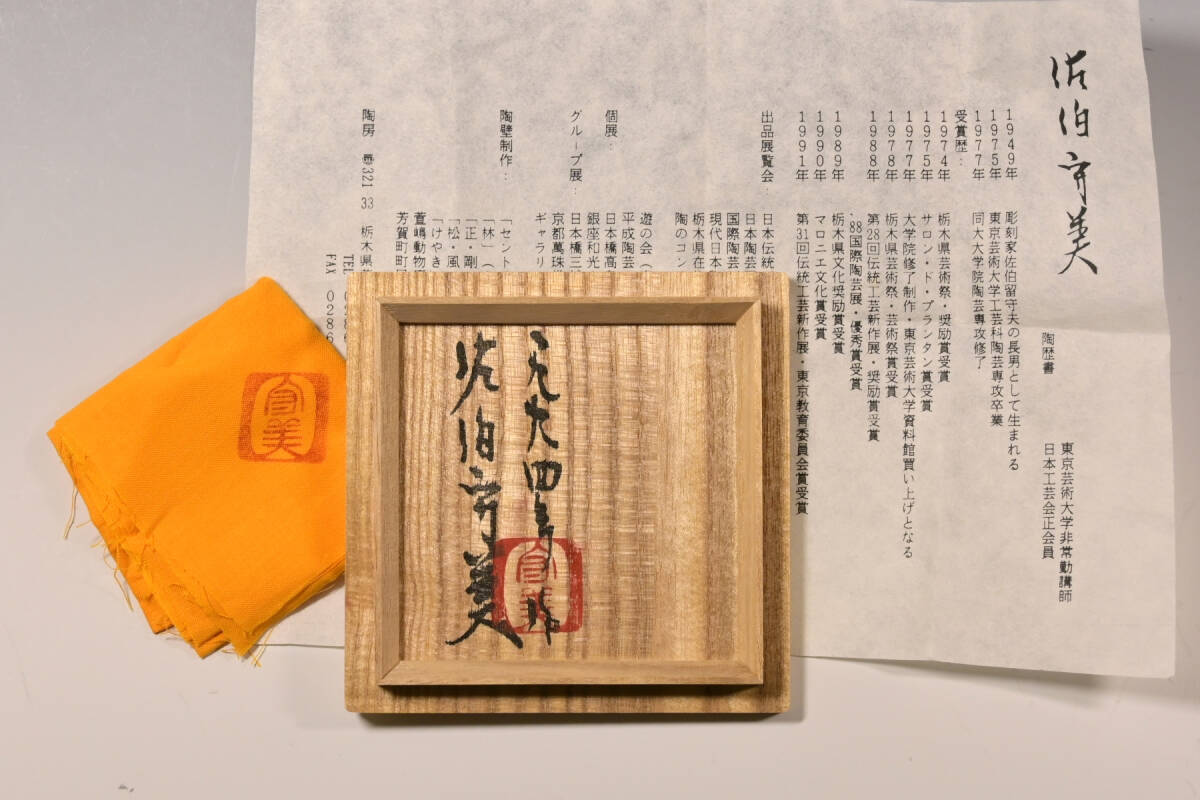 佐伯守美
陶歴書
東京芸術大学非常勤講師
日本工芸会正会員
1949年 彫刻家佐伯留守夫の長男として生まれる
1975年 東京芸術大学工芸科陶芸専攻卒業
1977年 同大大学院陶芸専攻修了
受賞歴：
1974年 栃木県芸術祭・奨励賞受賞
1975年 サロン・ド・プランタン賞受賞
1977年 大学院修了制作・東京芸術大学資料館買い上げとなる
1978年 栃木県芸術祭・芸術祭賞受賞
1988年 第28回伝統工芸新作展・奨励賞受賞
'88国際陶芸展・優秀賞受賞
1989年 栃木県文化奨励賞受賞
1990年 マロニエ文化賞受賞
1991年 第31回伝統工芸新作展・東京教育委員会賞受賞
出品展覧会：
日本伝統
日本陶芸
国際陶芸
現代日本
栃木県在
陶のコン
個展：
遊の会（
平成陶芸
日本橋高
グループ展：
銀座和光
日本橋三
京都萬珠
ギャラリ
陶壁制作：
「セント
「林」（
「正・剛
「松・風
「けやき
萱嶋動物
芳賀町町
陶房 〠321 33 栃木県
TEL 0286
FAX 0286
佐伯守美
守美
守美